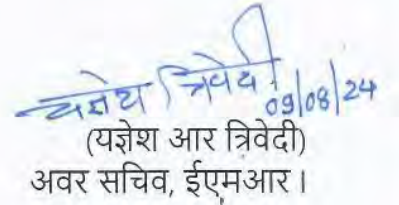 यज्ञेश त्रिवेदी
09/08/24
(यज्ञेश आर त्रिवेदी)
अवर सचिव, ईएमआर।